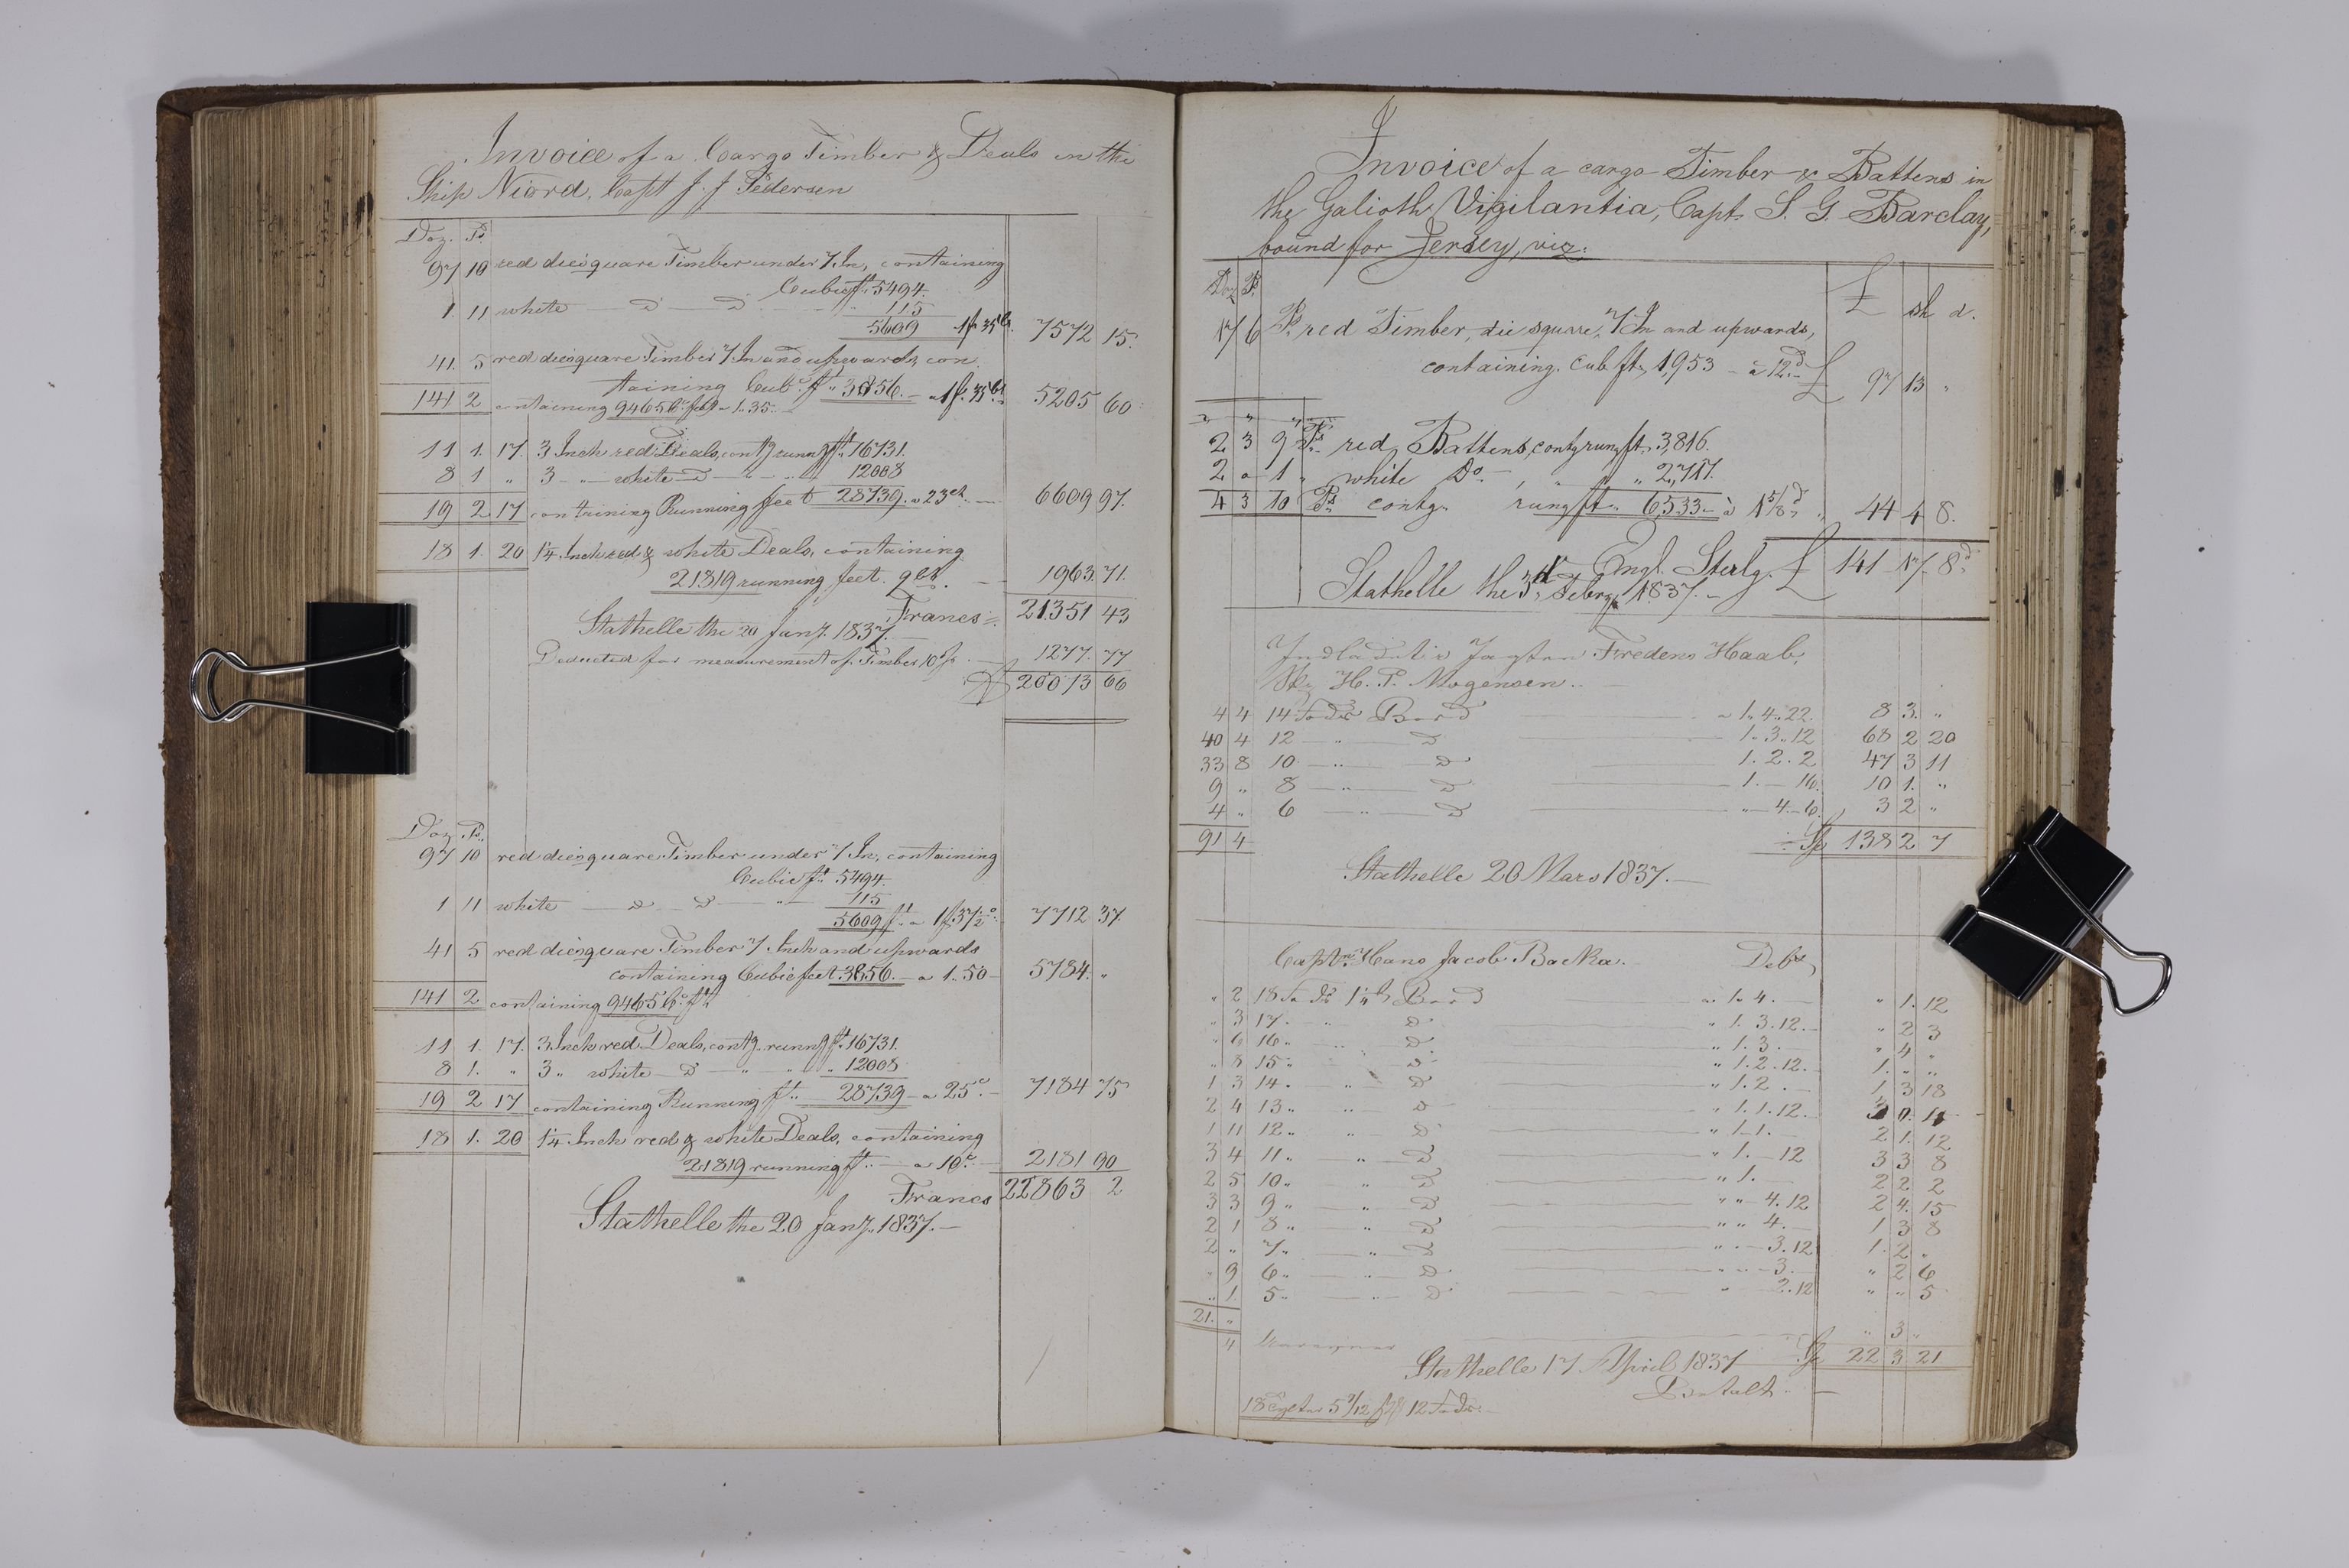 Invoice of a Cargo Timber & Deals in the
Ship Niord, Capt J. J Pedersen
Doz. Ps.
97 10 red diesquare Timber under 7 In, containing
Cubic ft 5494.
1. 11 white — D — D — 115
5609 1f 35 Cs. 7572 15.
41. 5 red diesquare Timber 7 In and upwards, con
taining Cubc ft 3856. — a 1f. 35 Cs. 5205 60
141 2 containing 9465 Cc feet a 1. 35.
11 1. 17. 3 Inch red Deals, contg runng ft 16731.
8 1 " 3 — " — white — D — " — 12008
19 2 17 containing Running feet 28739. a 23 ct. — 6609 97.
18 1. 20 1¼ Inch red & white Deals, containing
21819 running feet. 9 Cts. — 1963. 71.
Francs 21351 43
Stathelle the 20 Jany. 1837.
Deducted for measurement of Timber 10 pf. — 1277. 77
20073 66
Doz. Ps.
97 10 red diesquare Timber under 7 In, containing
Cubic ft 5494.
1 11 white — D — D — " — 115
5609 ft a 1f 37½ c. 7712 37.
41 5 red diesquare Timber 7 Inch and upwards
containing Cubic feet 3856. — a 1. 50 — 5784. "
141 2 containing 9465 Cc ft
11 1. 17. 3 Inch red Deals, contg. runng ft 16731.
8 1. " 3 " white — D — " — " 12008
19 2 17 containing Running ft 28739 — a 25 c. — 7184 75
18 1. 20 1¼ Inch red & white Deals, containing
21819 running ft — a 10 c. — 2181 90
Francs 22863 2
Stathelle the 20 Jany. 1837. —
Invoice of a cargo Timber & Battens in
the Galioth Vigilantia, Capt. S. G. Barclay,
bound for Jersey, viz:
Doz Ps. £ sh d.
17 6 Ps. red Timber, die square, 7 In and upwards,
containing. Cub ft, 1,953 — a 12 d £ 97 13 "
2 3 9 Ps. red Battens, contg rung ft, 3,816.
2 " 1 " white Do — " " 2,717.
4 3 10 Ps contg. rung ft. 6,533 — a 1 5/8 d " 44 4 8.
Engl. Sterlg. £ 141 17 8 d
Stathelle the 3d Febry 1837. —
Indladet i Jagten Fredens Haab,
Skr H. P. Mogensen. —
4 4 14 Fods Bord — a 1. 4. 22. 8 3. "
40 4 12 — " — D — 1. 3. 12 68 2 20
33 8 10 — " — D — 1. 2. 2 47 3 11
9 " 8 — " — D — 1. — 16. 10 1. "
4 " 6 — " — D — " 4. 6. 3 2 "
91 4 Sp 138 2 7
Stathelle 20 Mars 1837. —
Captn. Hans Jacob Backa. Debt,
" 2 18 Fods 1¼ Bord — a 1. 4. — " 1. 12
" 3 17. " D — " 1. 3. 12. — " 2 3
" 6 16 " " D — " 1. 3. " 4 "
" 8 15 " " D — " 1. 2. 12. 1. " "
1 3 14. " D — " 1. 2. — 1. 3 18
2 4 13 " " D — " 1. 1. 12. 3 0. 11
1 11 12 " " D — " 1. 1. 2 1. 12
3 4 11 " " D — " 1. — 12 3 3 8
2 5 10 " " D — " 1. 2 2 2
3 3 9 " " D — " " 4. 12 2 4. 15
2 1 8 " " D — " " 4. 1 3 8
2 " 7 " " D — " 3. 12 1. 2 "
" 9 6 " — " — D — " 3. " 2 6
" 1. 5 " — " — D — " 2. 12 " " 5
21. "
4 " 3 "
Sp 22 3 21
Stathelle 17 April 1837
Betalt. —
18 Tylter 5 7/12 12 Fods. —